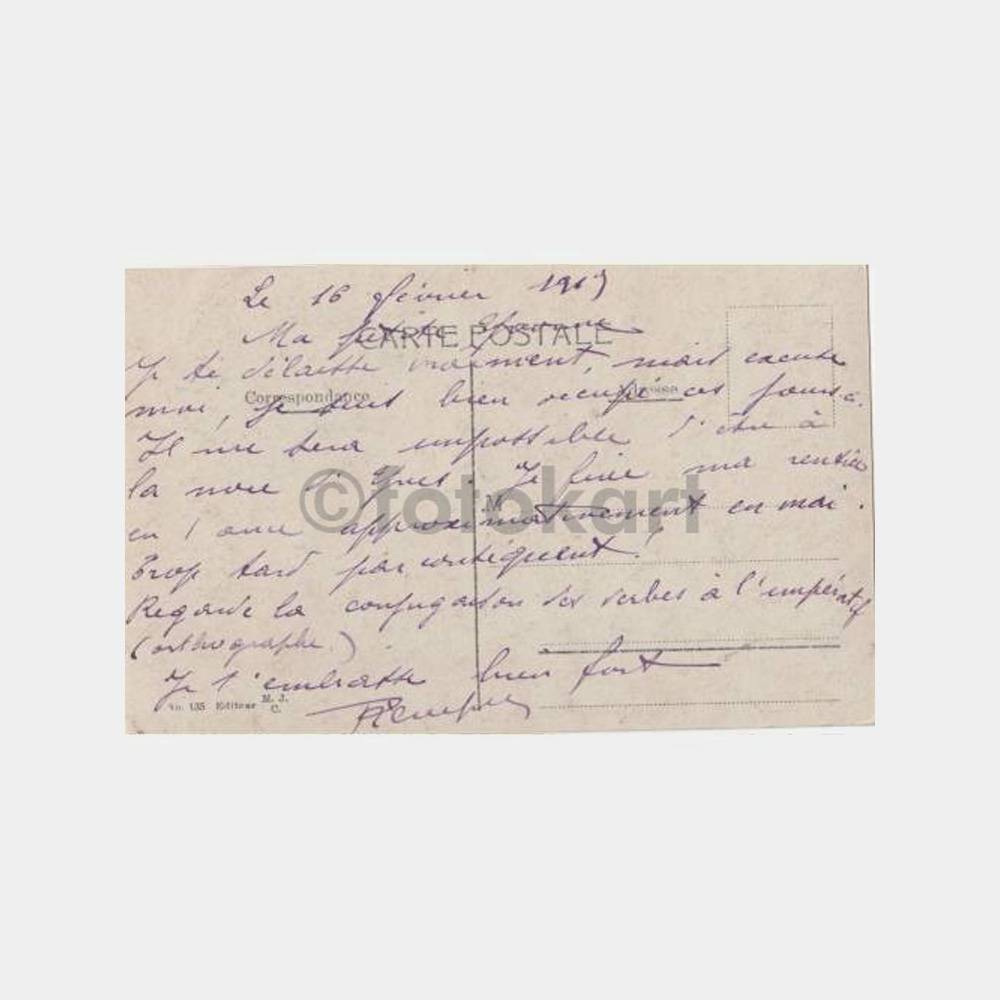 Le 16 février 1919
CARTE POSTALE
Ma petite
Je te délaisse vraiment, mais excuse
Correspondance
Adresse
moi, je suis bien occupé ces jours-ci.
Il me sera impossible d'être à
la noce d'Yves. Je ferai ma rentrée
©fotokart
en approximativement en mai.
Trop tard par conséquent!
Regarde la conjugaison des verbes à l'impératif
(orthographe)
Je t'embrasse bien fort
No. 135 Editeur M. J. C.